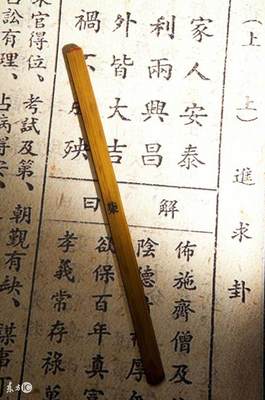 （上上）進求卦
家人安泰
利兩興昌
外皆大吉
禍不殃
解曰
佈施齊僧及
陰德厚
欲保百年真富
孝義常存祿萬
官得位、考試及第、朝覲有缺、謀事
訟有理、占病得安、
东方IC